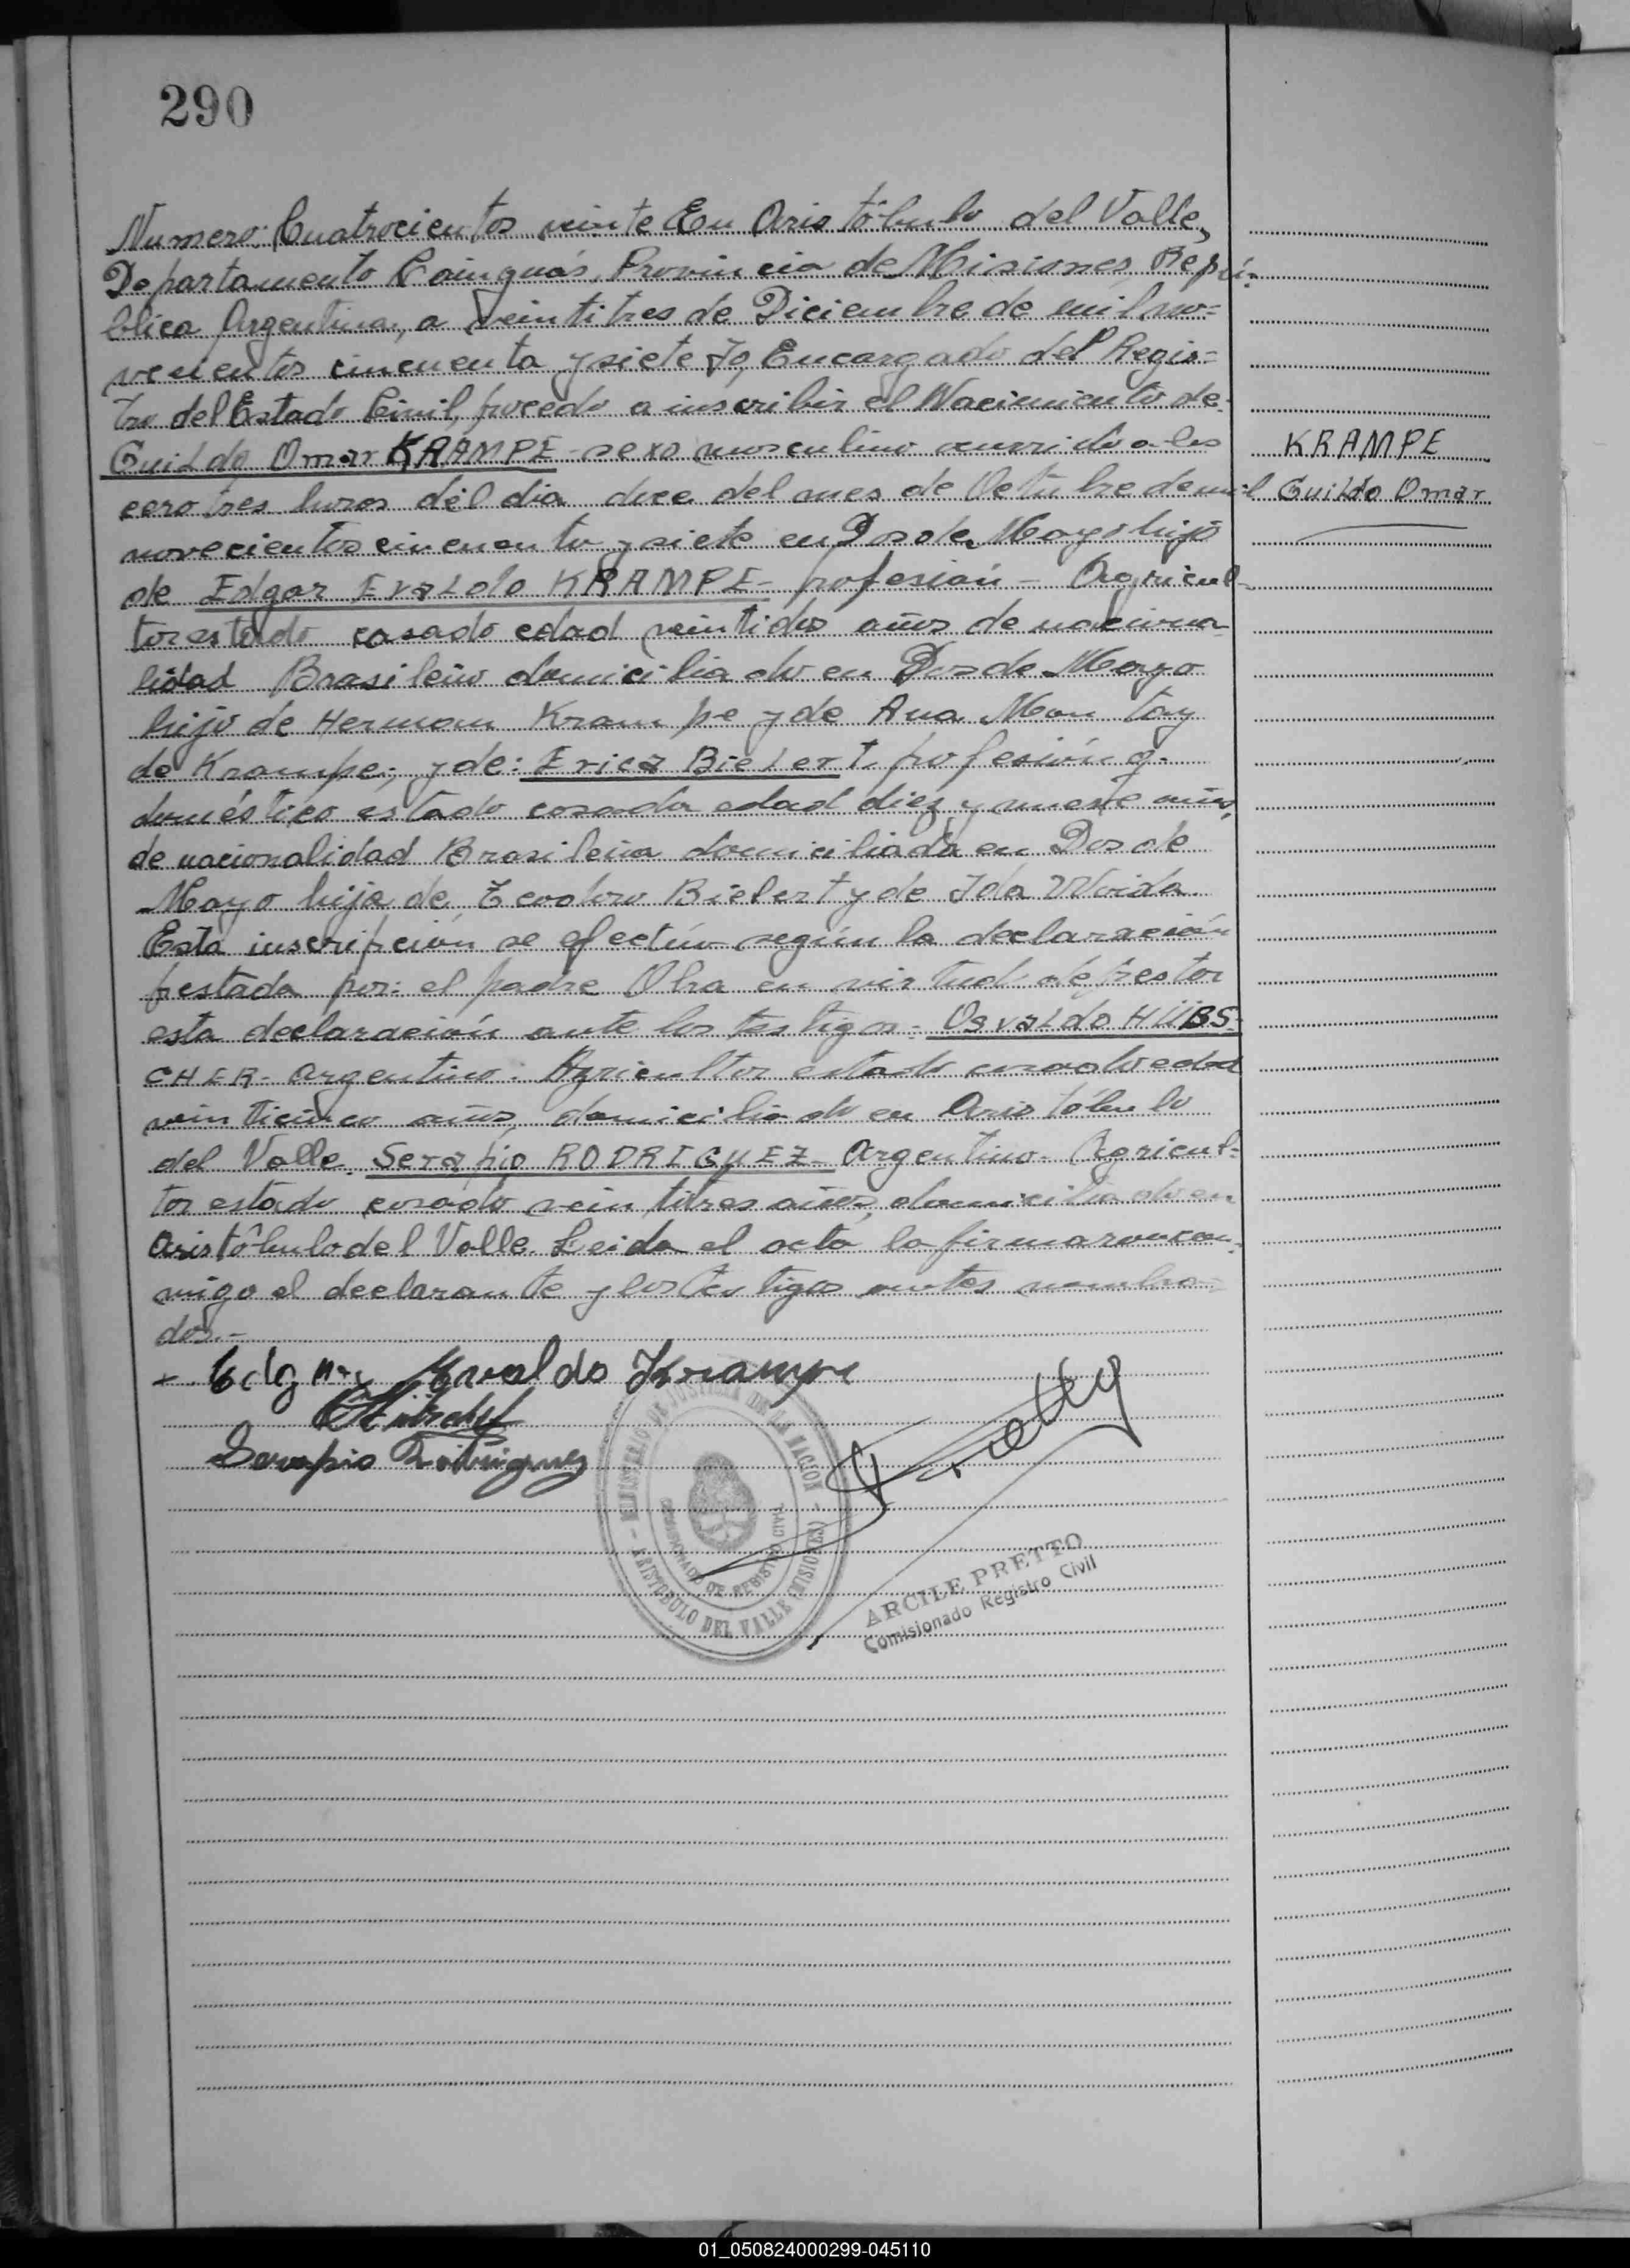 290
Numero: Cuatrocientos veinte En Aristóbulo del Valle,
Departamento Cainguás, Provincia de Misiones, Repú-
blica Argentina, a veintitres de Diciembre de mil no-
vecientos cincuenta y siete Yo, Encargado del Regis-
tro del Estado Civil, procedo a inscribir el Nacimiento de:
Guildo Omar KRAMPE - sexo masculino ocurrido a las
KRAMPE
cero tres horas del dia doce del mes de Octubre de mil
Guildo Omar
novecientos cincuenta y siete en Dos de Mayo hijo
de Edgar Evaldo KRAMPE - profesión - Agricul-
tor estado casado edad veintidos años de naciona-
lidad Brasileño domiciliado en Dos de Mayo
hijo de Herman Krampe y de Ana Montay
de Krampe; y de: Erica Bielert, profesión q.
doméstico estado casada edad diez y nueve años,
de nacionalidad Brasileña domiciliada en Dos de
Mayo hija de Teodoro Bielert y de Ida
Esta inscripción se efectúo según la declaración
prestada por: el padre Obra en virtud de prestar
esta declaración ante los testigos - Osvaldo HÜBS-
CHER - Argentino. Agricultor estado casado edad
veinticinco años, domiciliado en Aristóbulo
del Valle. Serapio RODRIGUEZ - Argentino - Agricul-
tor estado casado veintitres años, domiciliado en
Aristóbulo del Valle. Leida el acta la firmaron con-
migo el declarante y los testigos antes nombra-
dos.-
Edgar Evaldo Krampe
Serapio Rodriguez
MINISTERIO DE JUSTICIA DE LA NACION
COMISIONADO DE REGISTRO CIVIL
ARISTOBULO DEL VALLE (MISIONES)
ARCILE PRETTO
Comisionado Registro Civil
01_050824000299-045110